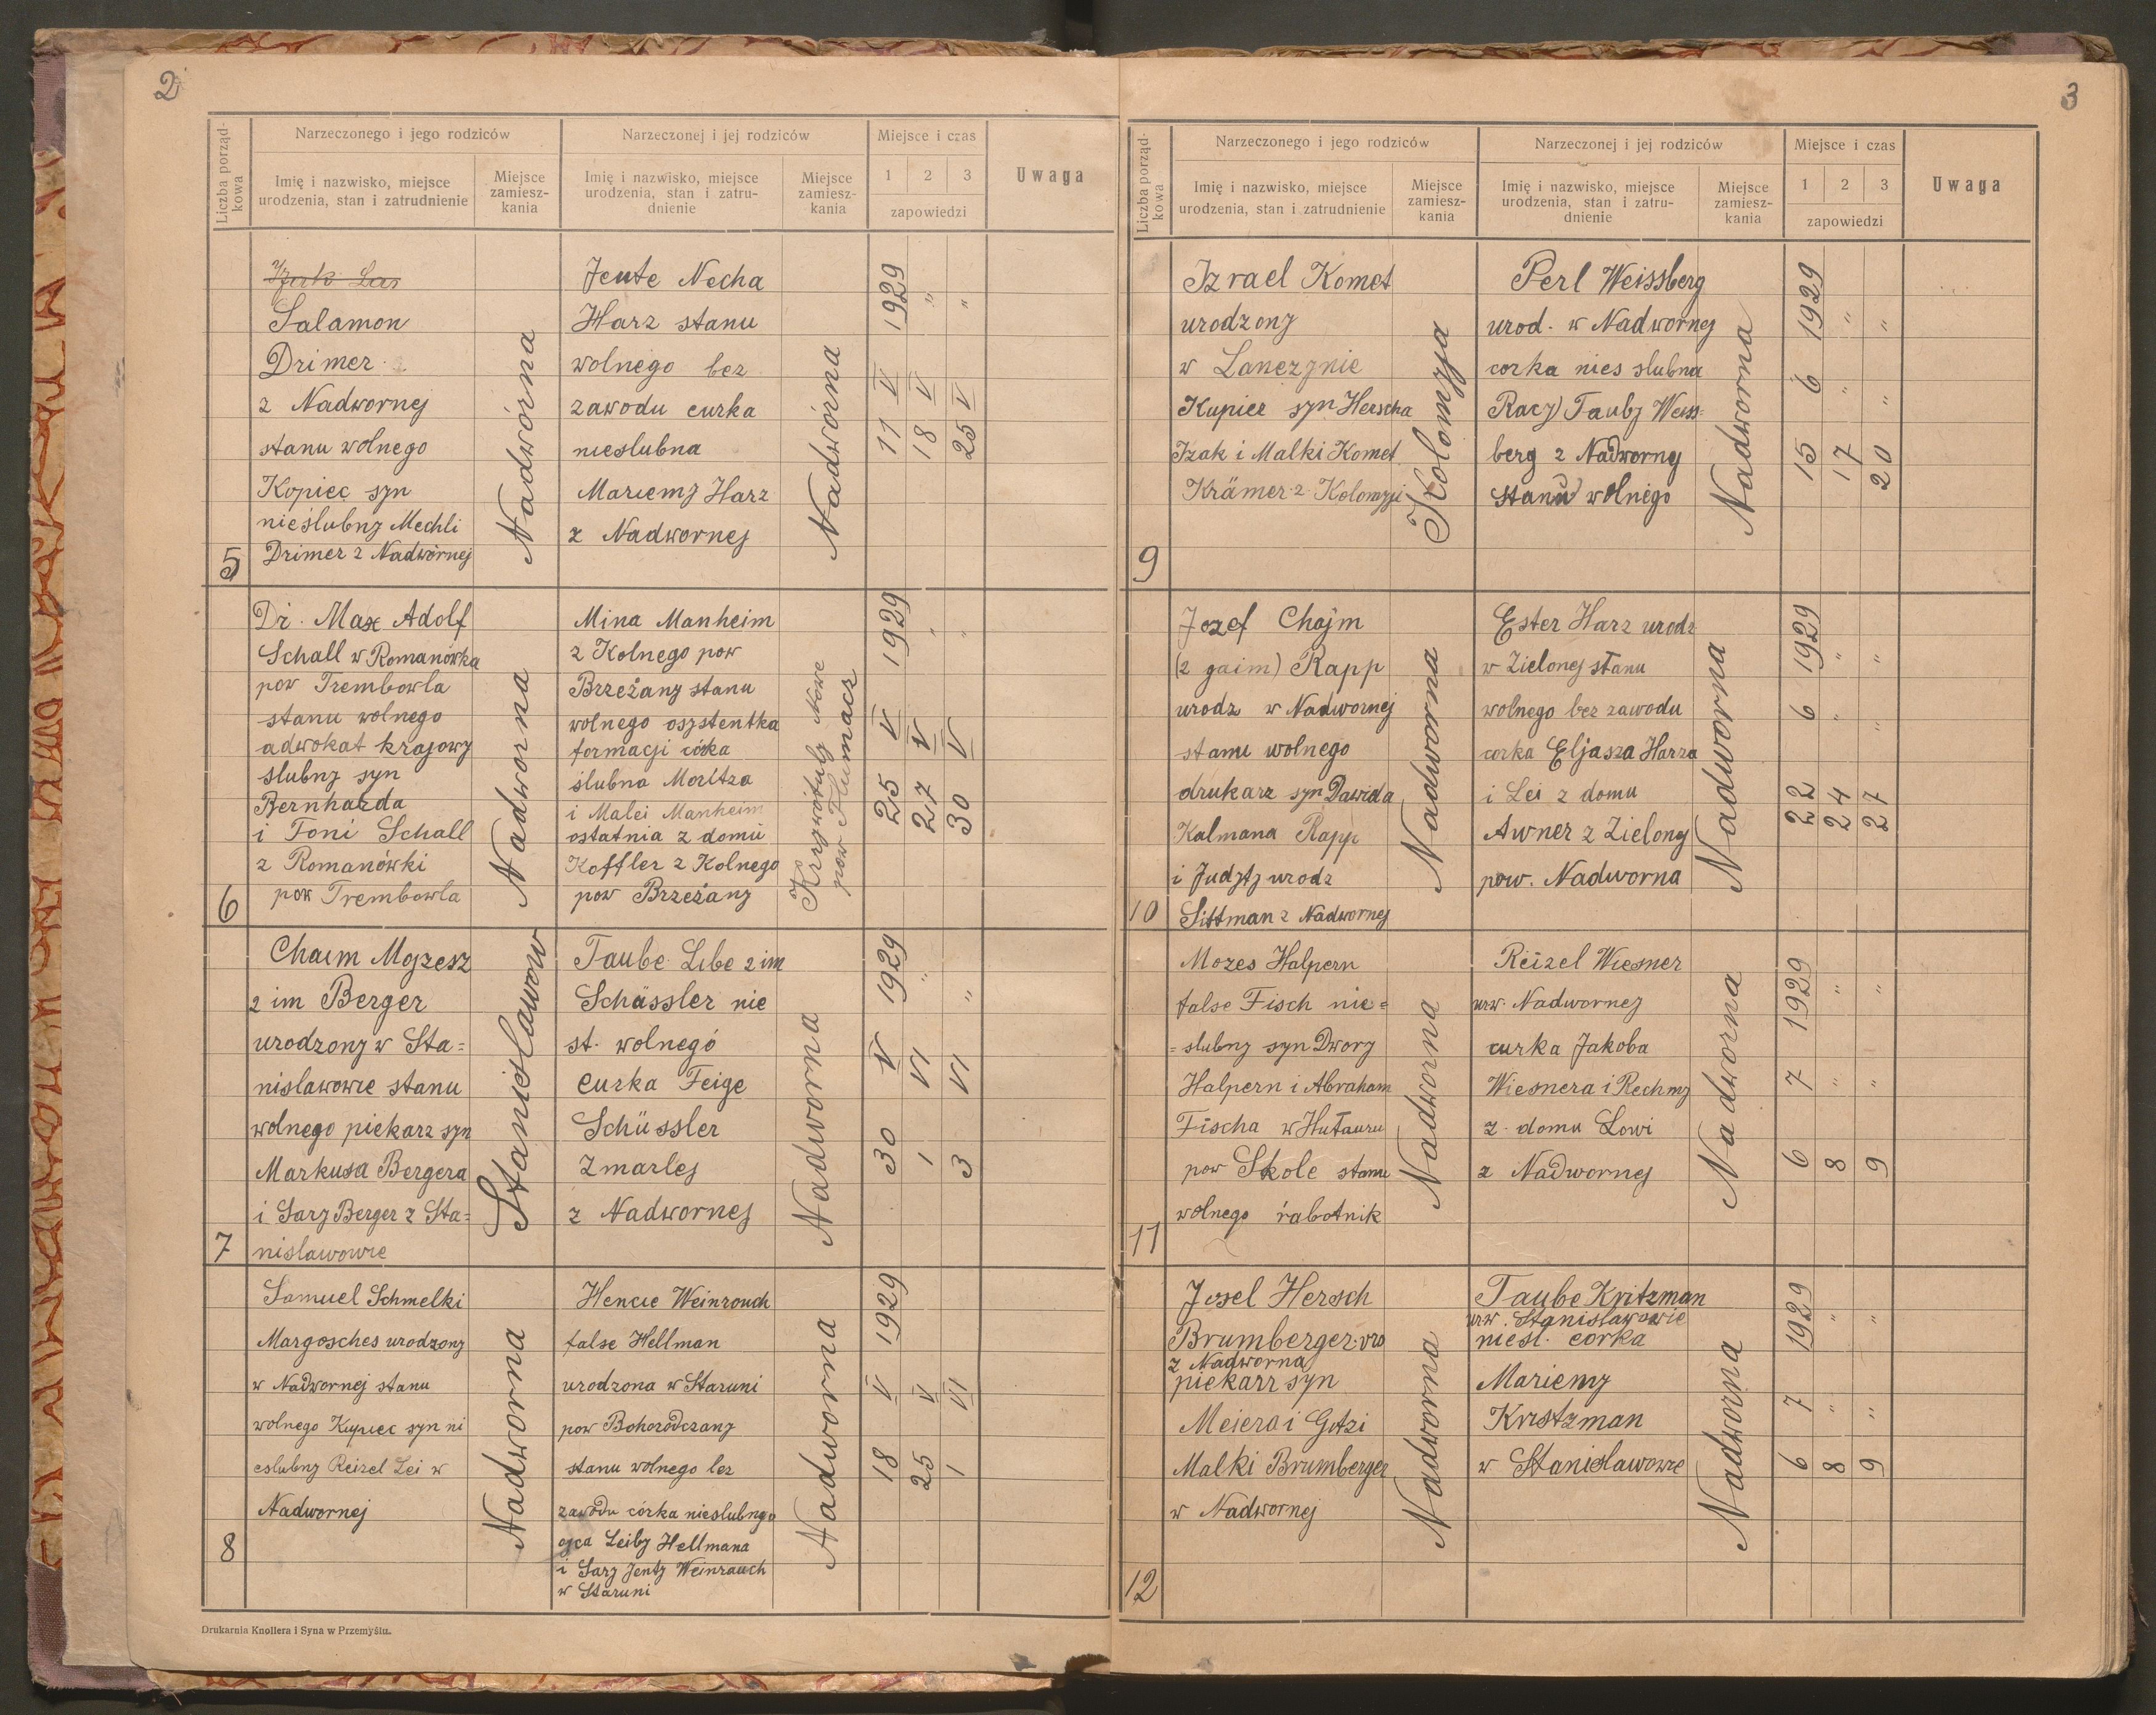 2
Liczba porząd-
kowa
Narzeczonego i jego rodziców
Narzeczonej i jej rodziców
Miejsce i czas
Uwaga
Imię i nazwisko, miejsce
urodzenia, stan i zatrudnienie
Miejsce
zamiesz-
kania
Imię i nazwisko, miejsce
urodzenia, stan i zatru-
dnienie
Miejsce
zamiesz-
kania
1 2 3
zapowiedzi
5
Salamon
Drimer
z Nadwornej
stanu wolnego
Kopiec syn
nieślubny Mechli
Drimer z Nadwórnej
Nadwórna
Jente Necha
Harz stanu
wolnego bez
zawodu curka
nieslubna
Mariemy Harz
z Nadwornej
Nadwórna
11 V 1929
18 V "
25 V "
6
Dr. Max Adolf
Schall w Romanówka
pow Trembowla
stanu wolnego
adwokat krajowy
slubny syn
Bernharda
i Toni Schall
z Romanówki
pow Trembowla
Nadworna
Mina Manheim
z Kolnego pow
Brzeżany stanu
wolnego osystentka
formacji córka
ślubna Moritza
i Malei Manheim
ostatnia z domu
Koffler z Kolnego
pow Brzeżany
Krzywotuly Nowe
pow Tlumacz
25 V 1929
27 V "
30 V "
7
Chaim Mojzesz
2 im Berger
urodzony w Sta=
nislawowie stanu
wolnego piekarz syn
Markusa Bergera
i Sary Berger z Sta=
nislawowie
Stanislawow
Taube Libe 2 im
Schässler nie
st. wolnego
curka Feige
Schüssler
zmarlej
z Nadwornej
Nadworna
30 V 1929
1 VI "
3 VI "
8
Samuel Schmelki
Margosches urodzony
w Nadwornej stanu
wolnego Kupiec syn ni
eslubny Reizel Lei w
Nadwornej
Nadworna
Hencie Weinrouch
false Hellman
urodzona w Staruni
pow Bohorodczany
stanu wolnego bez
zawodu córka nieslubngo
ojca Leiby Hellmana
i Sary Jenty Weinrauch
w Staruni
Nadworna
18 V 1929
25 V
1 VI
Drukarnia Knollera i Syna w Przemyślu.
3
Liczba porząd-
kowa
Narzeczonego i jego rodziców
Narzeczonej i jej rodziców
Miejsce i czas
Uwaga
Imię i nazwisko, miejsce
urodzenia, stan i zatrudnienie
Miejsce
zamiesz-
kania
Imię i nazwisko, miejsce
urodzenia, stan i zatru-
dnienie
Miejsce
zamiesz-
kania
1 2 3
zapowiedzi
9
Izrael Komet
urodzony
w Lanczynie
Kupier syn Herscha
Izak i Malki Komet
Krämer z Kolomyji
Kolomyja
Perl Weissberg
urod. w Nadwornej
corka nies slubna
Racy Tauby Weiss=
berg z Nadwornej
stanu wolnego
Nadworna
15 6 1929
17 " "
20 " "
10
Jozef Chajm
(2 gaim) Rapp
urodz w Nadwornej
stanu wolnego
drukarz syn Dawida
Kalmana Rapp
i Judyty urodz
Sittman z Nadwornej
Nadworna
Ester Harz urodz
w Zielonej stanu
wolnego bez zawodu
corka Eljasza Harza
i Lei z domu
Awner z Zielonej
pow. Nadworna
Nadworna
22 6 1929
24 " "
27 " "
11
Mozes Halpern
false Fisch nie=
=slubny syn Dwory
Halpern i Abraham
Fischa w Hutauru
pow Skole stanu
wolnego rabotnik
Nadworna
Reizel Wiesner
urw. Nadwornej
curka Jakoba
Wiesnera i Rechmy
z domu Lowi
z Nadwornej
Nadworna
6 7 1929
8 " "
9 " "
12
Josel Hersch
Brumberger uro
z Nadworna
piekarz syn
Meiera i Gotzi
Malki Brumberger
w Nadwornej
Nadworna
Taube Kritzman
urw. Stanislawowie
niesl. corka
Mariemy
Kristzman
w Stanislawowie
Nadworna
6 7 1929
8 " "
9 " "